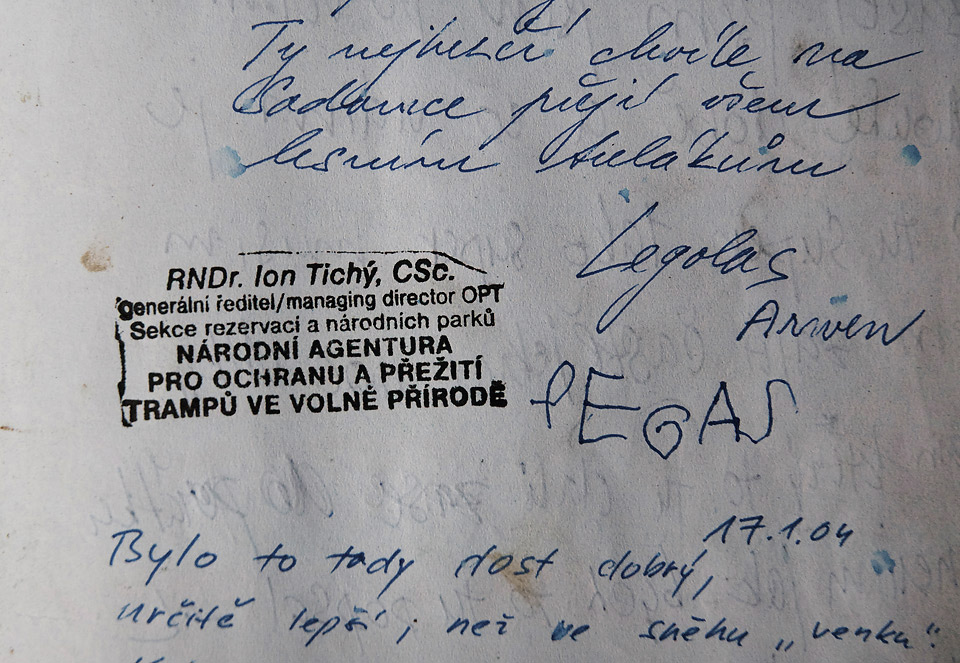 Ty nejhezčí chvíle na
Sadovice přejí všem
lesním tulákům
Legolas
Arwen
PEGAS
RNDr. Ion Tichý, CSc.
Generální ředitel/managing director OPT
Sekce rezervací a národních parků
NÁRODNÍ AGENTURA
PRO OCHRANU A PŘEŽITÍ
TRAMPŮ VE VOLNÉ PŘÍRODĚ
17.1.04
Bylo to tady dost dobrý,
určitě lepší, než ve sněhu „venku".